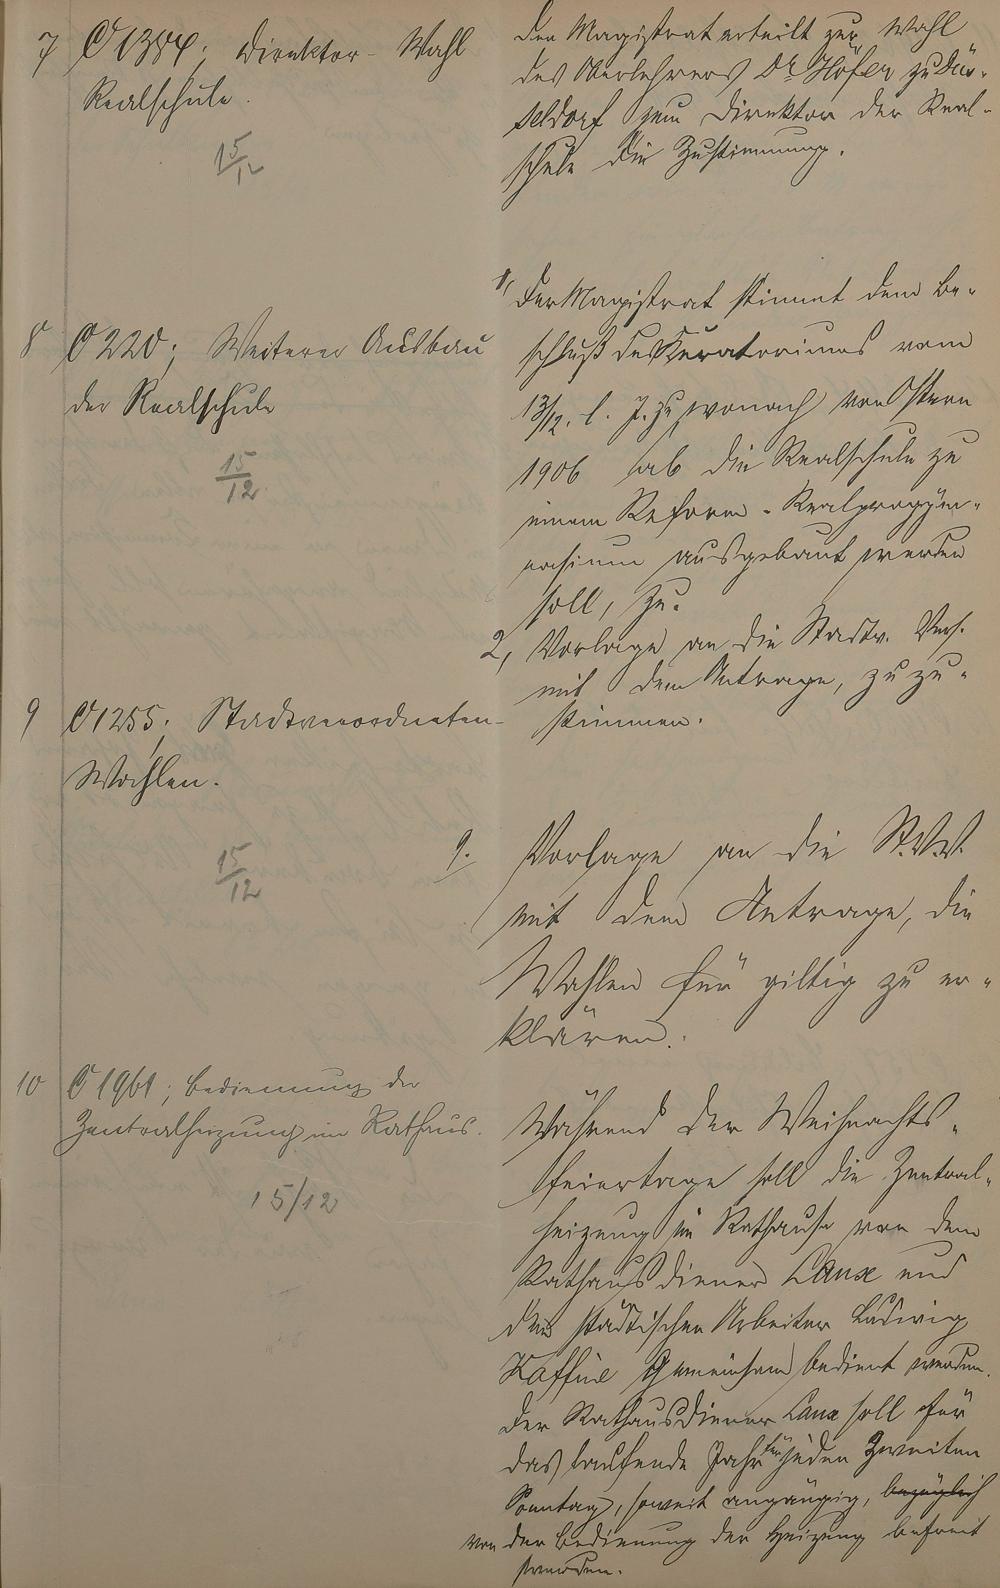 7 C 1384; Direktor-Wahl
Realschule.
15/12
Der Magistrat erteilt zur Wahl
des Oberlehrers Dr Höfer zu Düs-
seldorf zum Direktor der Real-
schule die Zustimmung.
8 C 220; Weiterer Ausbau
der Realschule
15/12
1, Der Magistrat stimmt dem Be-
schluß des Kuratoriums vom
13/12. l. J. zu, wonach von Ostern
1906 ab die Realschule zu
einem Reform-Realprogym-
nasium ausgebaut werden
soll, zu.
2, Vorlage an die Stadtv. Vers.
mit dem Antrage, zuzu-
stimmen.
9 C 1255; Stadtverordneten-
Wahlen.
15/12
9. Vorlage an die St.V.V.
mit dem Antrage, die
Wahlen für giltig zu er-
klären.
10 C 1961; Bedienung der
Zentralheizung im Rathaus.
15/12
Während der Weihnachts-
feiertage soll die Zentral-
heizung im Rathause von dem
Rathausdiener Laux und
dem städtischen Arbeiter Ludwig
Kaffine gemeinsam bedient werden.
Der Rathausdiener Laux soll für
das laufende Jahr für jeden zweiten
Sonntag, soweit angängig, bezüglich
von der Bedienung der Heizung befreit
werden.